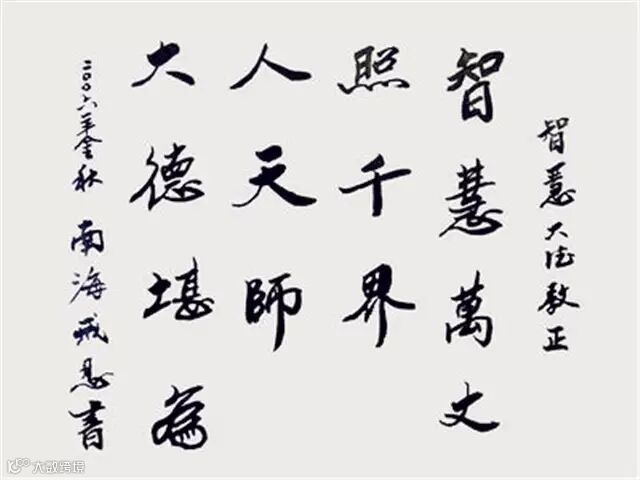 智慧大德教正
智慧萬丈
照千界
人天師
大德堪為
二〇〇六年金秋 南海戒忍書
大数跨境